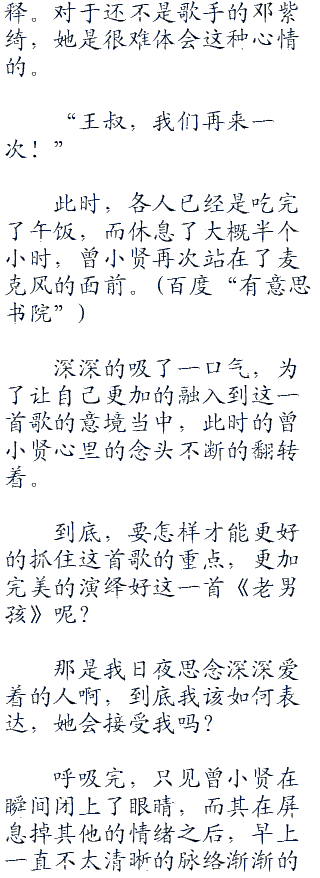 释。对于还不是歌手的邓紫
绮，她是很难体会这种心情
的。
“王叔，我们再来一
次！”
此时，各人已经是吃完
了午饭，而休息了大概半个
小时，曾小贤再次站在了麦
克风的面前。(百度“有意思
书院”)
深深的吸了一口气，为
了让自己更加的融入到这一
首歌的意境当中，此时的曾
小贤心里的念头不断的翻转
着。
到底，要怎样才能更好
的抓住这首歌的重点，更加
完美的演绎好这一首《老男
孩》呢？
那是我日夜思念深深爱
着的人啊，到底我该如何表
达，她会接受我吗？
呼吸完，只见曾小贤在
瞬间闭上了眼睛，而其在屏
息掉其他的情绪之后，早上
一直不太清晰的脉络渐渐的